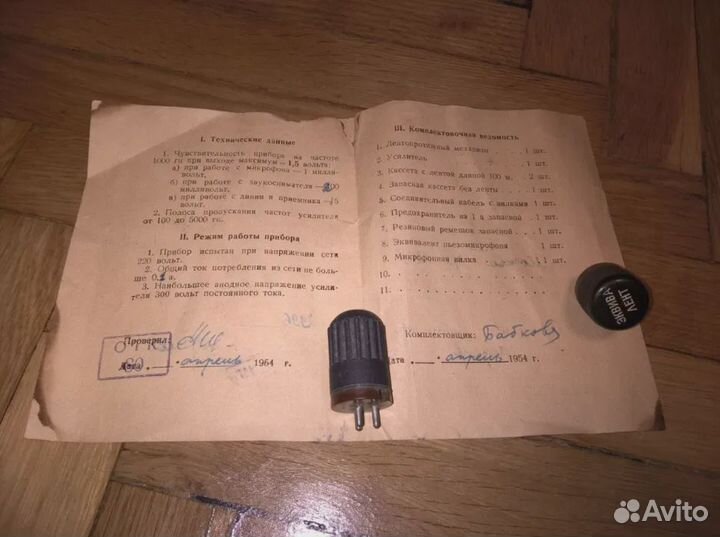 I. Технические данные
1. Чувствительность прибора на частоте
1000 гц при выходе максимум — 1,5 вольта:
а) при работе с микрофона — 1 милли-
вольт,
б) при работе с звукоснимателя — 200
милливольт,
в) при работе с линии и приемника — 5
вольт.
2. Полоса пропускания частот усилителя
от 100 до 5000 гц.
II. Режим работы прибора
1. Прибор испытан при напряжении сети
220 вольт.
2. Общий ток потребления из сети не боль-
ше 0, а.
3. Наибольшее анодное напряжение усили-
теля 300 вольт постоянного тока.
Проверил:
ОТК
60
Дата · апрель 1954 г.
III. Комплектовочная ведомость
1. Лентопротяжный механизм . 1 шт.
2. Усилитель 1 шт.
3. Кассета с лентой длиной 100 м. . 2 шт.
4. Запасная кассета без ленты . . 1 шт.
5. Соединительный кабель с вилками . 1 шт.
6. Предохранитель на 1 а запасной . . 1 шт.
7. Резиновый ремешок запасной . . 1 шт.
8. Эквивалент пьезомикрофона . 1 шт.
9. Микрофонная вилка 1 шт.
10. . . . . . . . . . .
11. . . . . . . . . . .
Комплектовщик: Бабкова
Дата · апрель 1954 г.
ЭКВИВА
ЛЕНТ
Avito